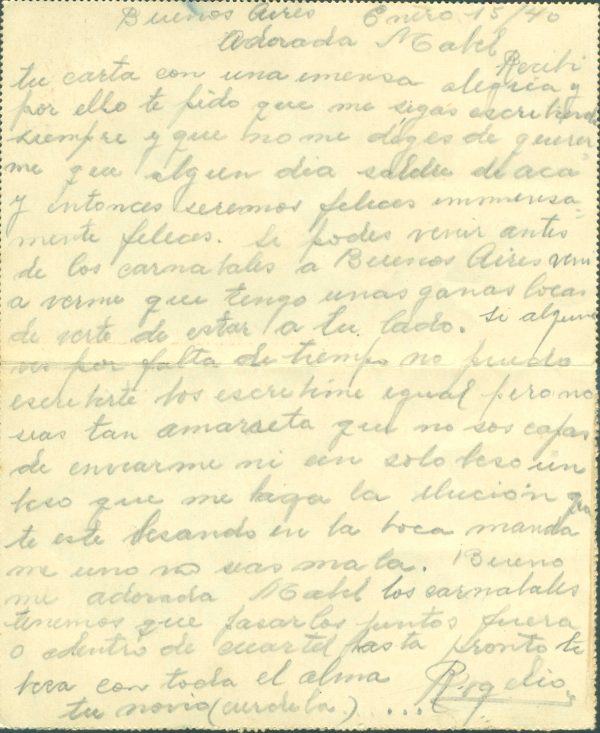 Buenos Aires Enero 15/40
Adorada Mabel
Recibi
tu carta con una imensa alegria y
por ello te pido que me sigas escribiendo
siempre y que no me dejes de querer
me que algun dia saldre de aca
y entonces seremos felices immensa
mente felices. Si podes venir antes
de los carnabales a Buenos Aires veni
a verme que tengo unas ganas locas
de verte de estar a tu lado. Si alguna
ves por falta de tiempo no puedo
escribirte bos escribime egual pero no
seas tan amarreta que no sos capas
de enviarme ni un solo beso un
beso que me haga la ilución que
te este besando en la boca manda
me uno no seas mala. Bueno
mi adorada Mabel los carnabales
tenemos que pasarlos juntos fuera
o adentro de cuartel asta pronto te
besa con toda el alma Rogelio
tu novio (curdela) ...